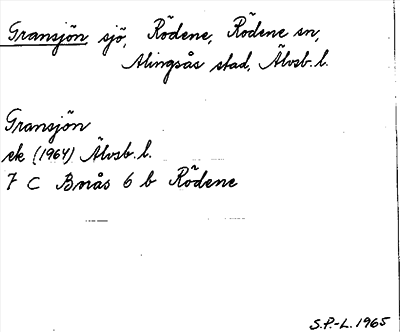 Gransjön, sjö, Rödene, Rödene sn,
Alingsås stad, Älvsb. l.
Gransjön
ek (1964) Älvsb. l.
7 C Borås 6 b Rödene
S.P.-L. 1965